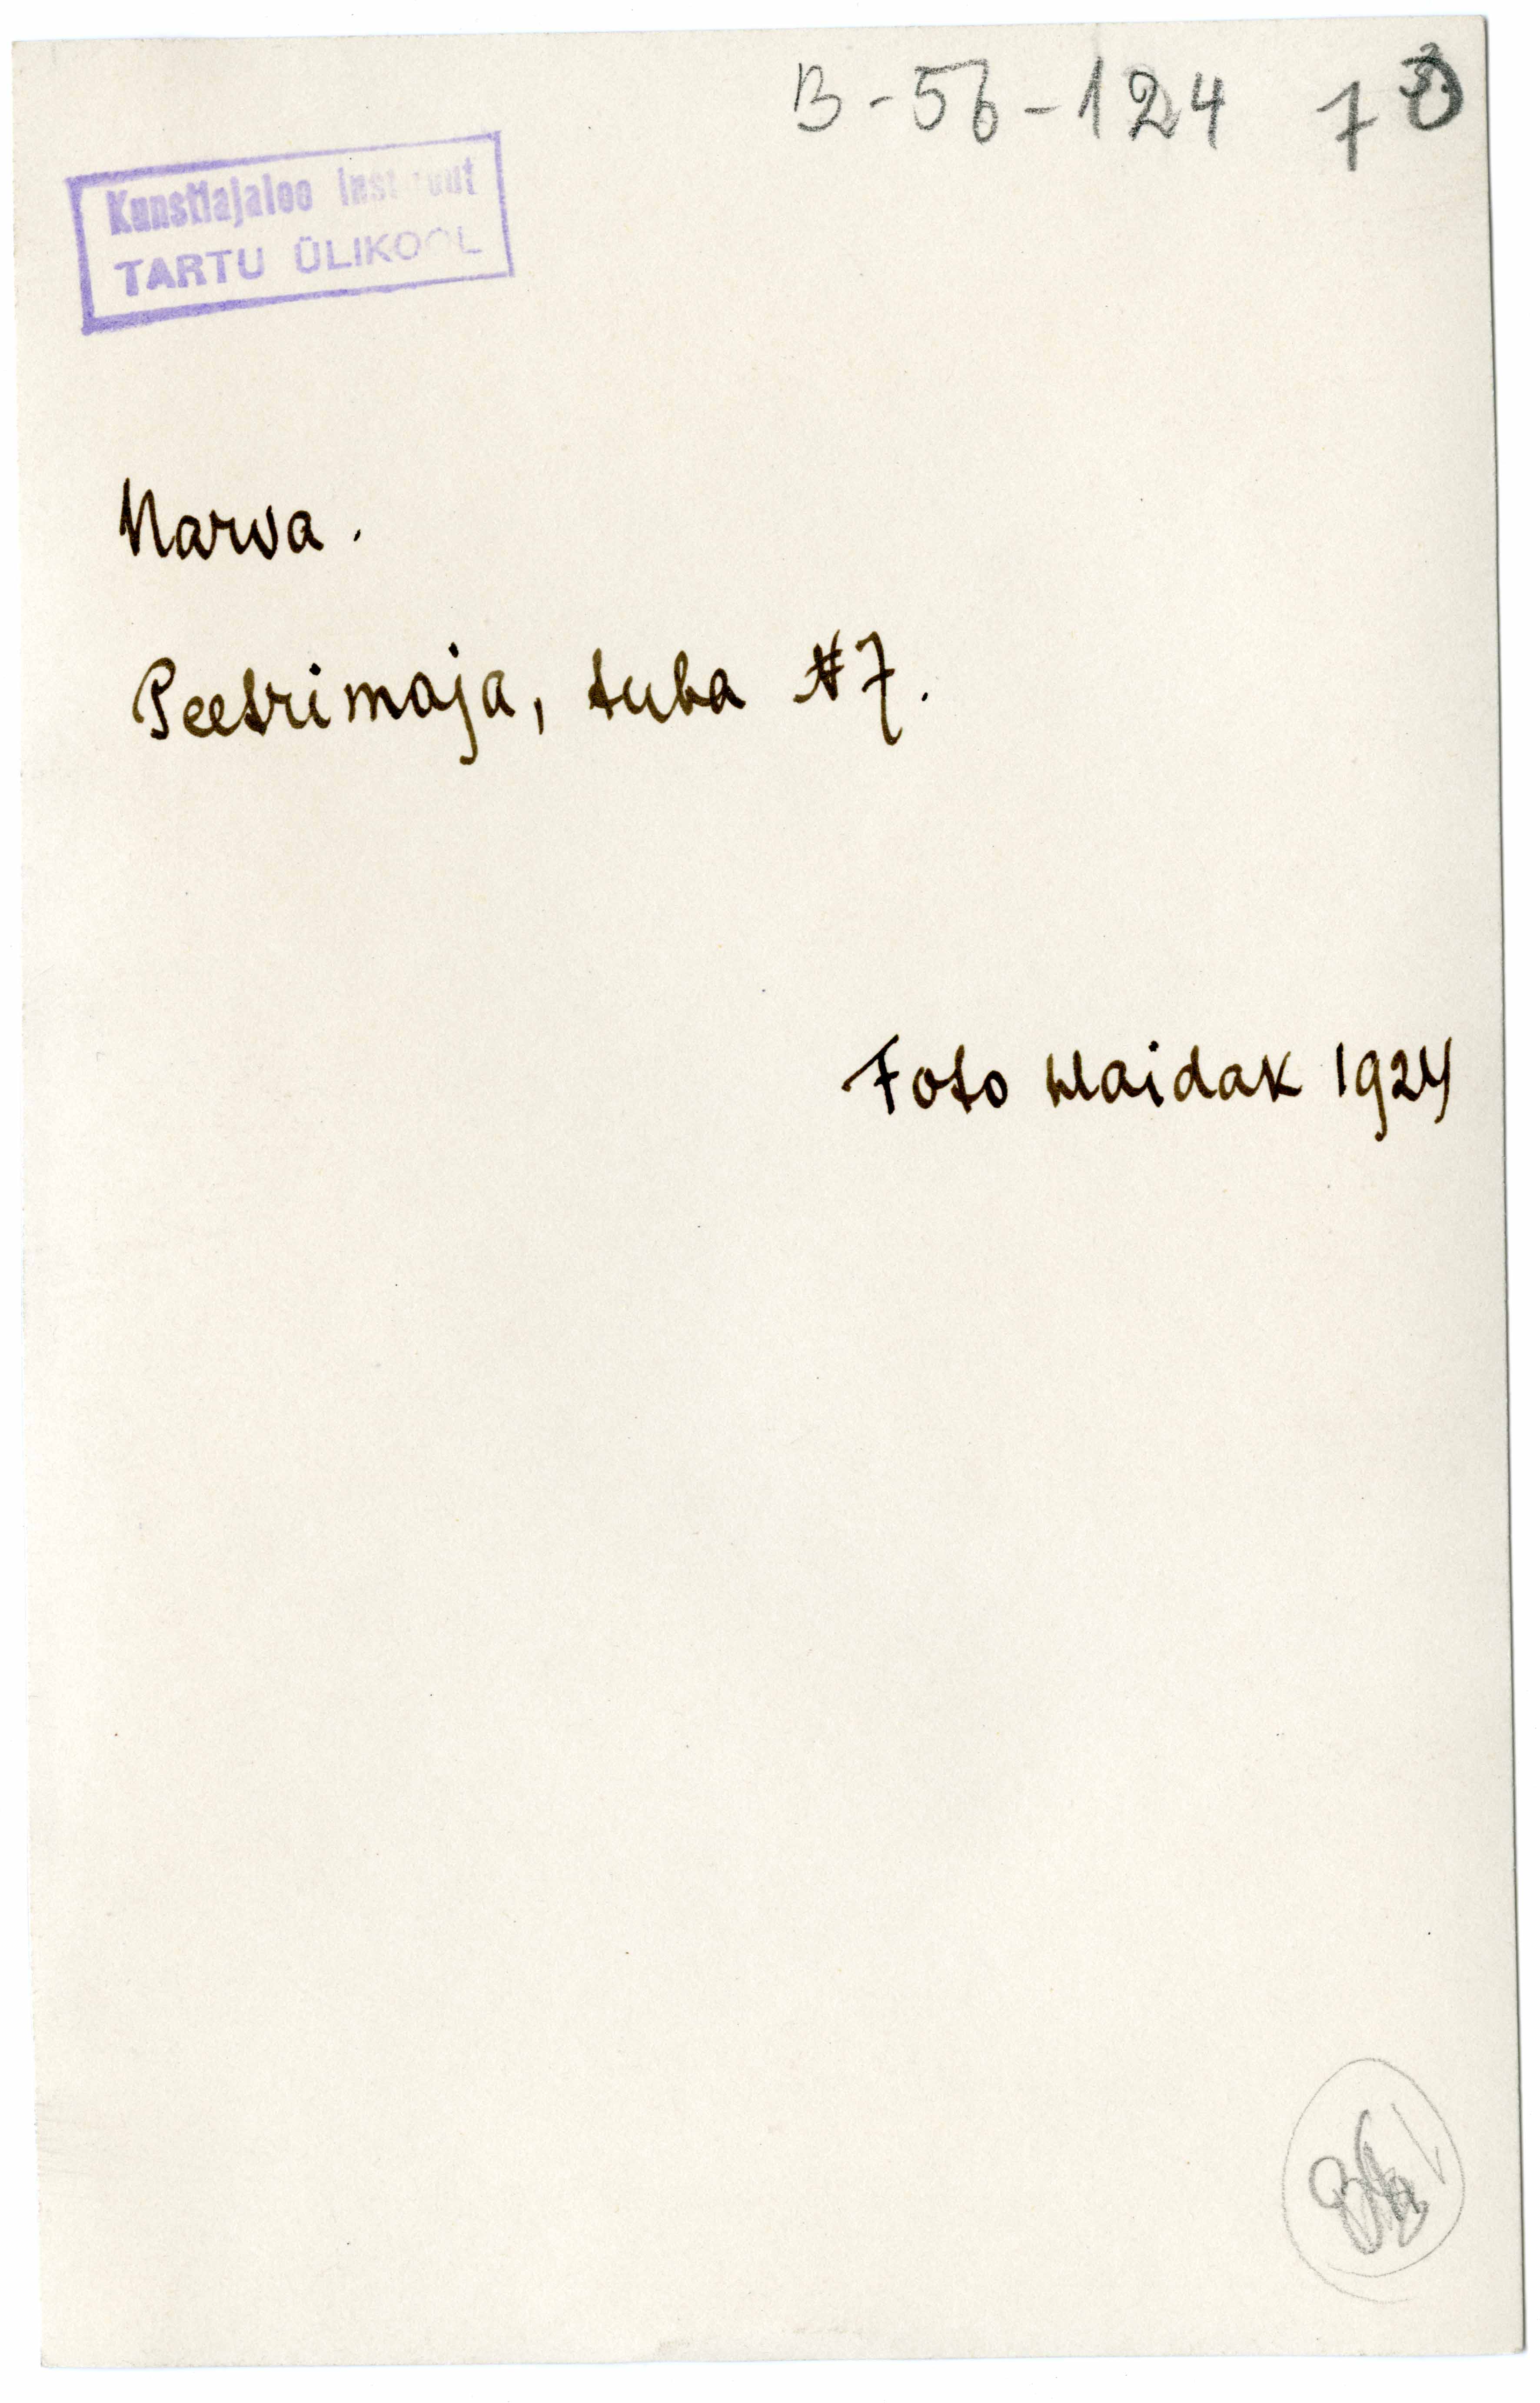 B-56-124 7
Kunstiajaloo Instituut
TARTU ÜLIKOOL
Narva.
Peetrimaja, tuba №7.
Foto Naidak 1924